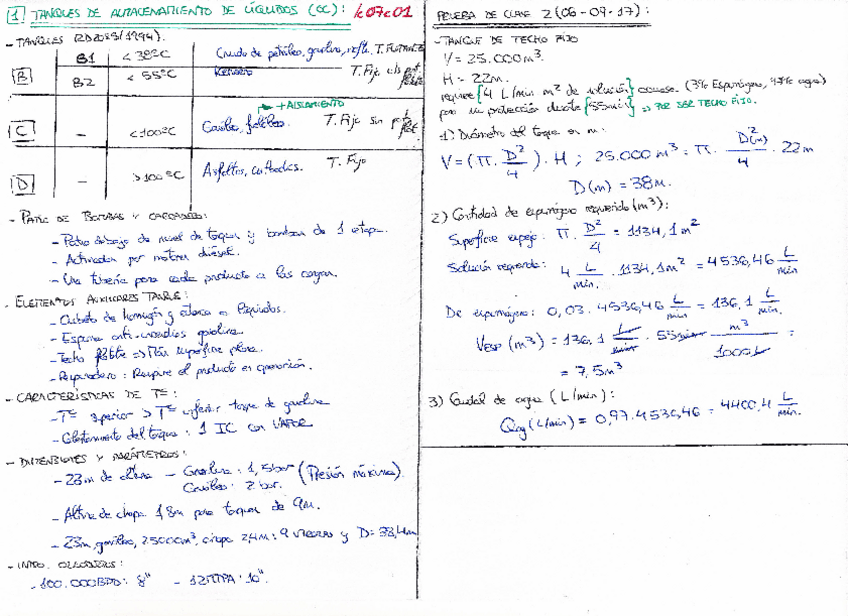 1 TANQUES DE ALMACENAMIENTO DE LÍQUIDOS (CC): k07c01
- TANQUES (RD2085/1994).
B B1 < 38ºC Crudo de petróleo, gasolina, nafta. T. FLOTANTE
B2 < 55ºC Keroseno T. Fijo c/s pot flot
+ AISLAMIENTO
C - < 100ºC Gasóleo, fuelóleo. T. Fijo sin pot flot.
D - > 100ºC Asfaltos, T. Fijo
- PATIO DE BOMBAS Y CARGADEROS:
- Patio debajo de nivel de tanque y bombas de 1 etapa.
- Activadas por motores diésel.
- Una tubería para cada producto a las cargas.
- ELEMENTOS AUXILIARES TANQUE:
- Cubeto de hormigón y en líquidos.
- Espuma anti-incendios gasolina.
- Techo flotante => superficie plana.
- : Recupere el producto en operación.
- CARACTERÍSTICAS DE Tª:
- Tª superior > Tª inferior tanque de gasolina
- Calentamiento del tanque: 1 IC con VAPOR
- DIMENSIONES Y PARÁMETROS:
- 23m de altura - Gasolina: 1,5 bar (Presión máxima).
Gasóleo: 2 bar.
- Altura de chapa 1,8m para tanques de 9m.
- 23m, gasóleo, 25000m³, chapa 2,4m: 9 y D=38,4m
- INTRO. OLEODUCTOS:
- 100.000BPD: 8" - 12MTPA: 10".
PRUEBA DE CLASE 2 (06-09-17):
- TANQUE DE TECHO FIJO
V = 25.000 m³.
H = 22m.
requiere {4 L/min m² de solución} acuosa. (3% Espumógeno, 97% agua)
para una protección durante {55min} => POR SER TECHO FIJO.
1) Diámetro del tanque en m:
V = (π. D²/4) . H ; 25.000 m³ = π. D²(m)/4 . 22m
D(m) = 38m.
2) Cantidad de espumógeno requerido (m³):
Superficie espejo: π. D²/4 = 1134,1 m²
Solución requerida: 4 L/min. . 1134,1m² = 4536,46 L/min
De espumógeno: 0,03. 4536,46 L/min = 136,1 L/min.
Vesp (m³) = 136,1 L/min . 55min . m³/1000L =
= 7,5m³
3) Caudal de agua (L/min):
Qag (L/min) = 0,97.4536,46 = 4400,4 L/min.